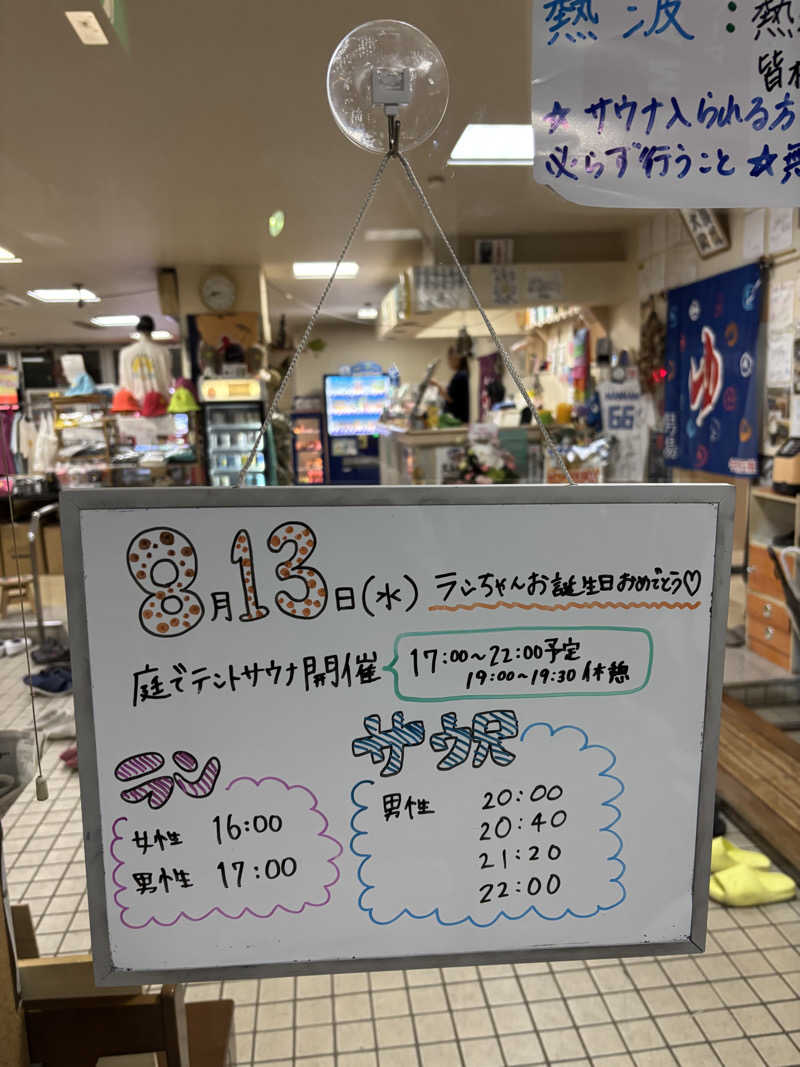 熱波：熱
皆
☆サウナ入られる方
必らず行うこと☆無
HANWAN
66
ゆ
8月13日(水) ランちゃんお誕生日おめでとう♡
庭でテントサウナ開催
17:00〜22:00予定
19:00〜19:30休憩
ラン
女性 16:00
男性 17:00
男性 20:00
20:40
21:20
22:00